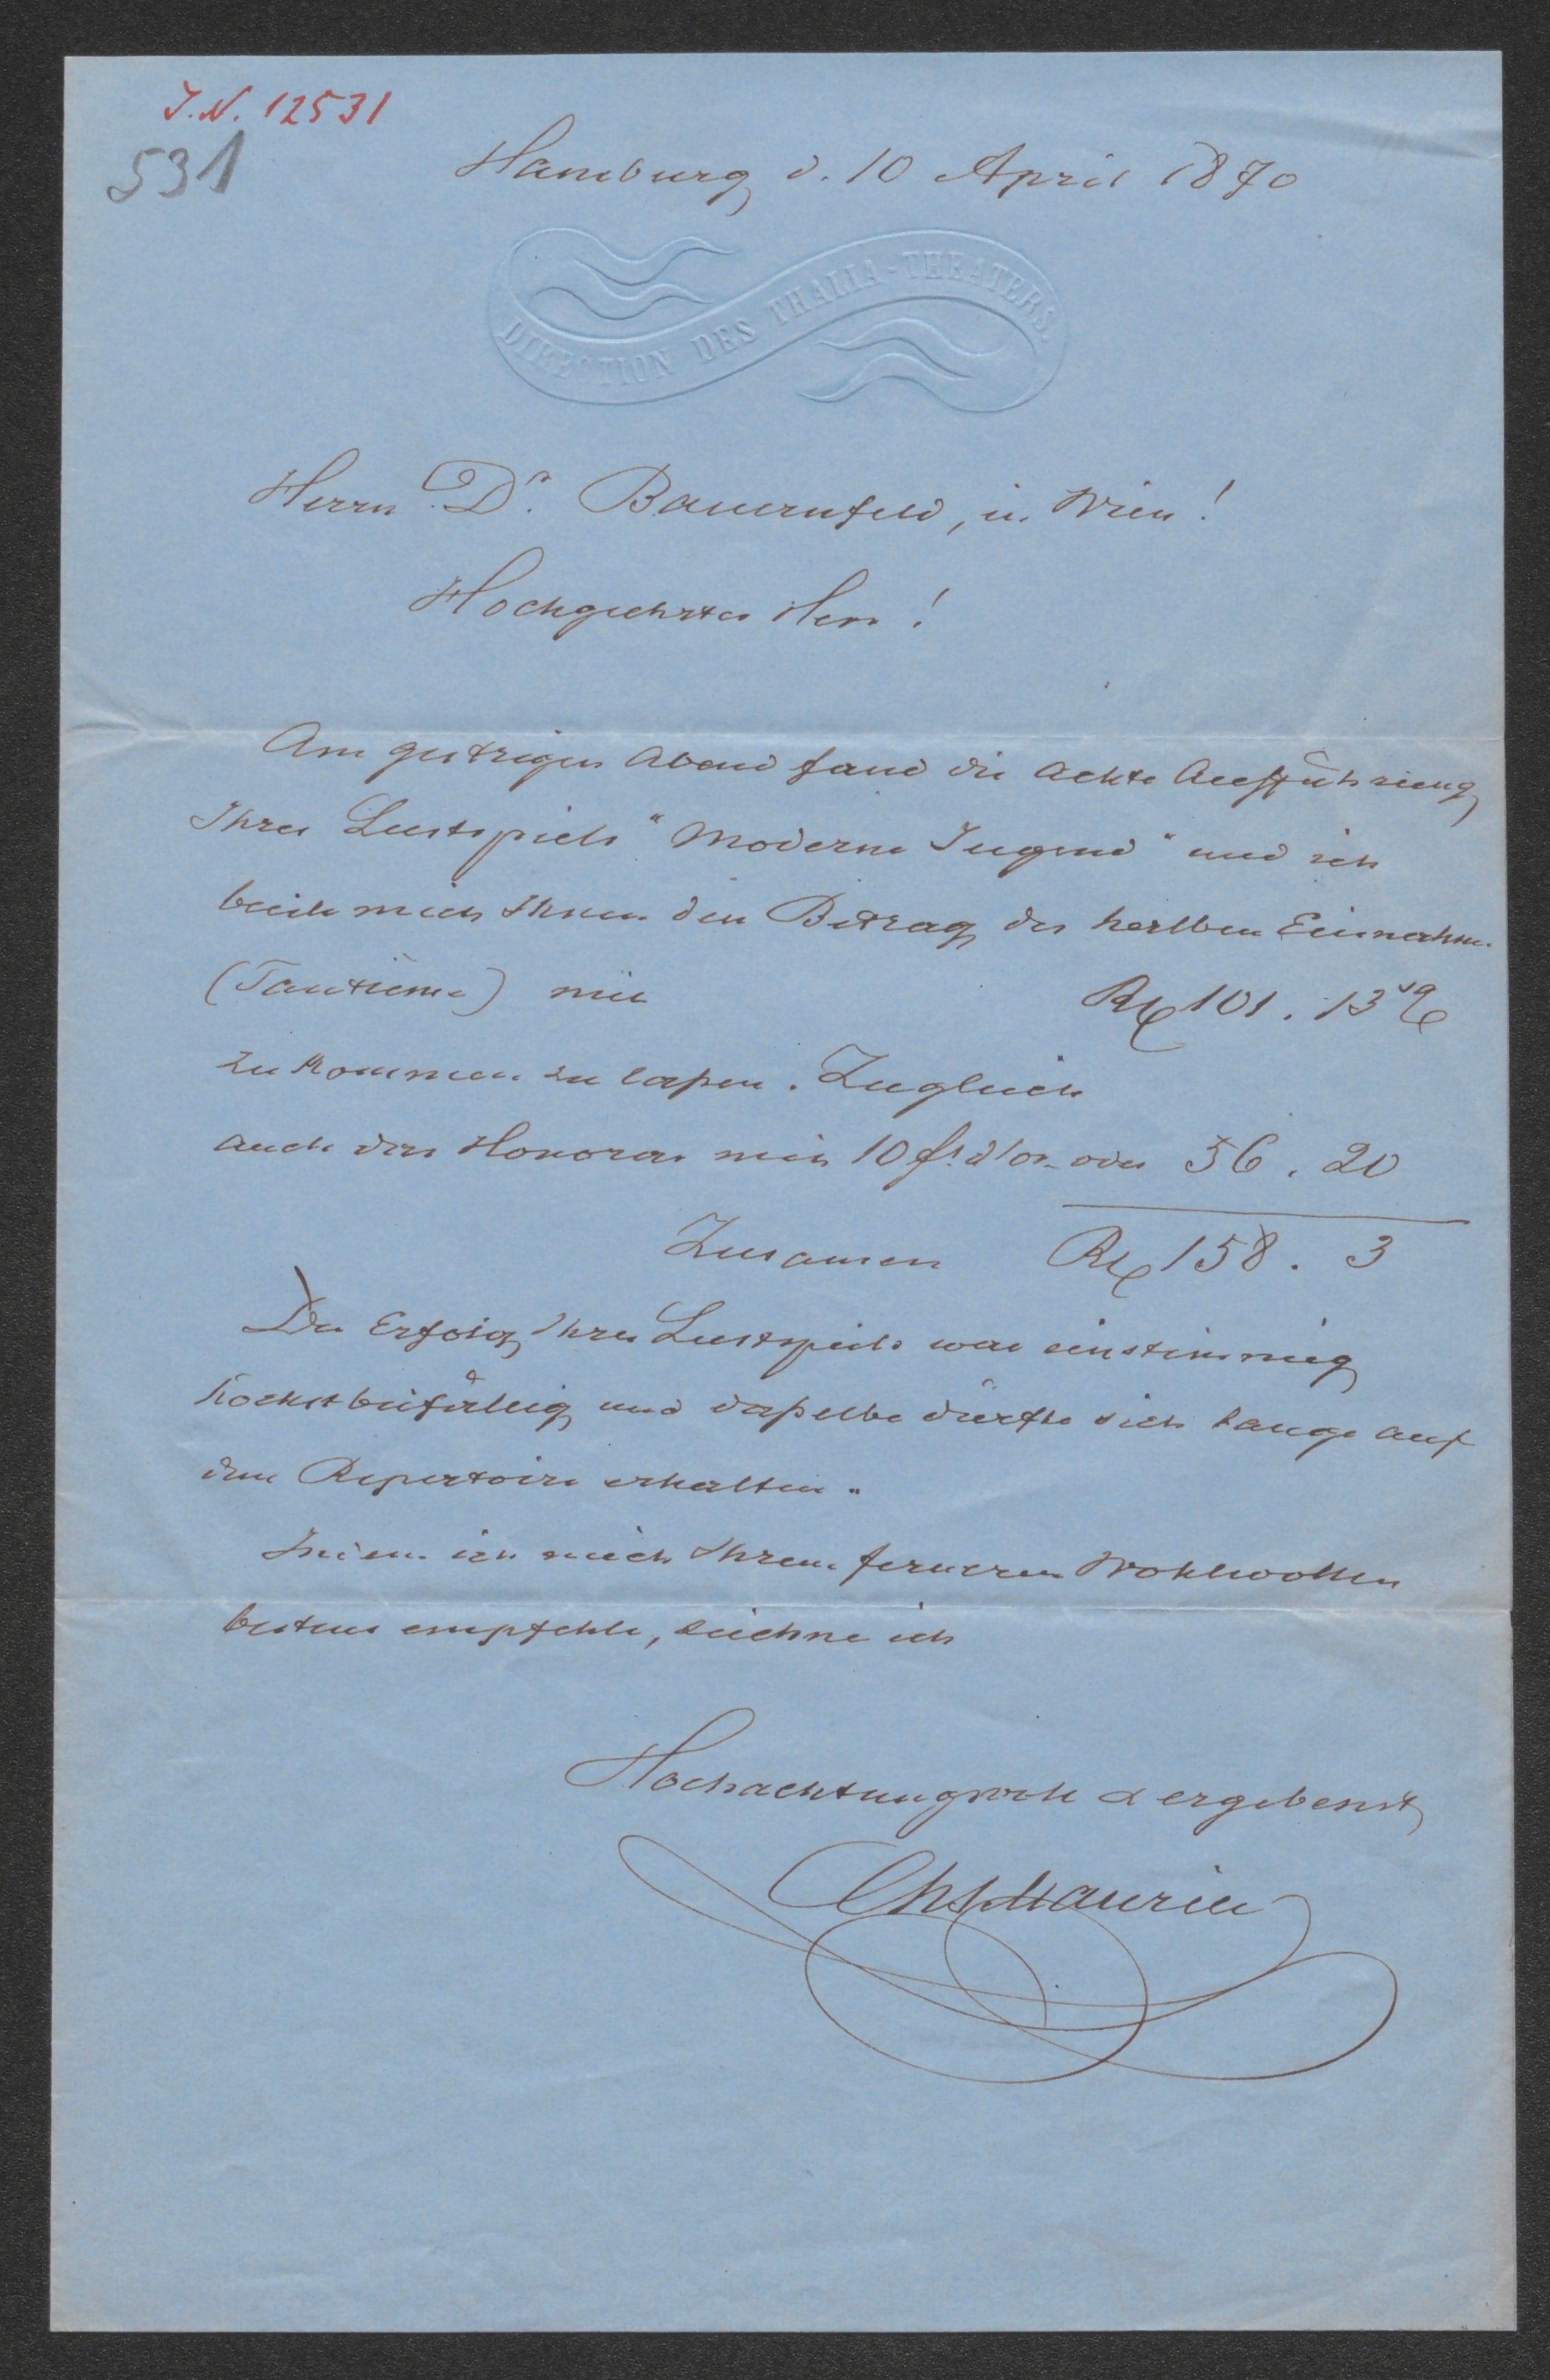 J.N. 12531
531
Hamburg d. 10 April 1870
DIRECTION DES THALIA-THEATERS.
Herrn Dr. Bauernfeld, in Wien!
Hochgeehrter Herr!
Am gestrigen Abend fand die achte Aufführung
Ihres Lustspiels "Moderne Jugend" und ich
beeile mich Ihnen den Betrag der halben Einnahme
(Tantième) mit 101. 13
zu kommen zu lassen. Zugleich
auch das Honorar mit 10 fr. d'or oder 56. 20
Zusamen 158. 3
Der Erfolg Ihres Lustspiels war einstimmig
höchst beifällig und dasselbe dürfte sich lange auf
dem Repertoire erhalten.
Indem ich mich Ihrem ferneren Wohlwollen
bestens empfehle, zeichne ich
Hochachtungsvoll & ergebenst
Chs Maurice